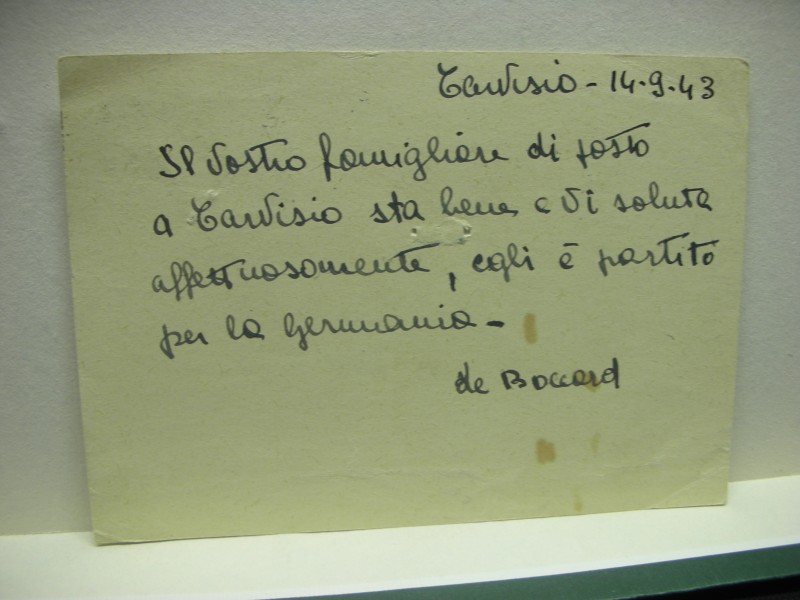 Tarvisio - 14.9.43
Il Vostro famigliare di posto
a Tarvisio sta bene e Vi saluta
affettuosamente, egli è partito
per la Germania -
de Boccard